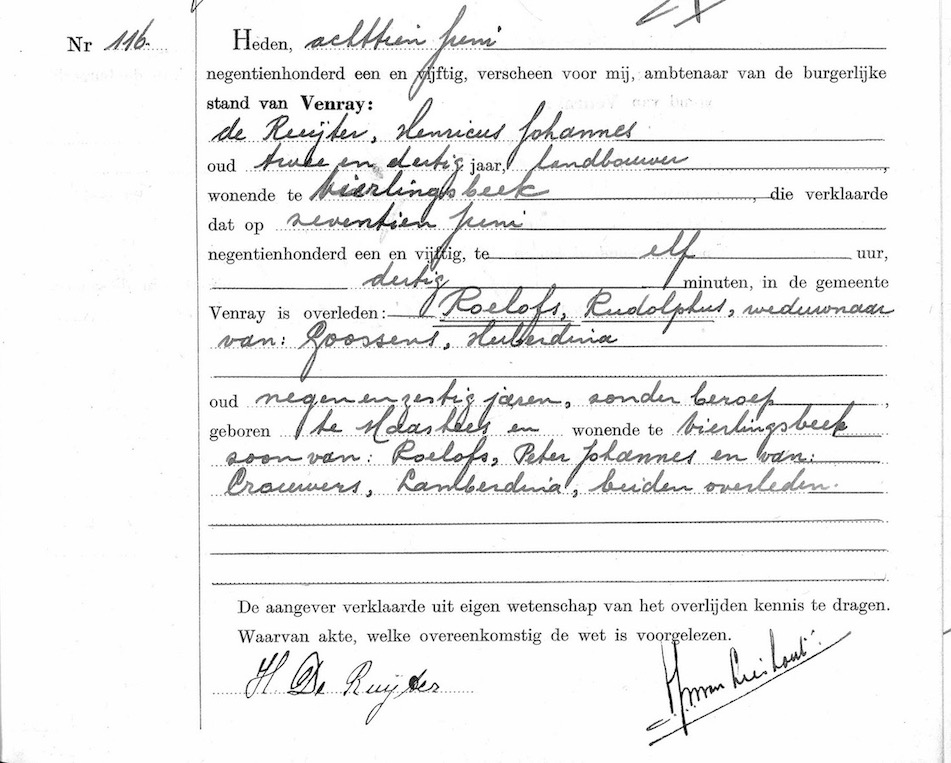 Nr 116.
Heden, achttien juni
negentienhonderd een en vijftig, verscheen voor mij, ambtenaar van de burgerlijke
stand van Venray:
de Ruijter, Henricus Johannes
oud twee en dertig jaar, landbouwer,
wonende te Vierlingsbeek, die verklaarde
dat op seventien juni
negentienhonderd een en vijftig, te elf uur,
dertig minuten, in de gemeente
Venray is overleden: Roelofs, Rudolphus, weduwnaar
van: Goossens, Huberdina
oud negen en zestig jaren, sonder beroep,
geboren te Maashees en wonende te Vierlingsbeek
soon van: Roelofs, Peter Johannes en van:
Crouwers, Lamberdina, beiden overleden.
De aangever verklaarde uit eigen wetenschap van het overlijden kennis te dragen.
Waarvan akte, welke overeenkomstig de wet is voorgelezen.
H. De Ruijter
van Lieshout